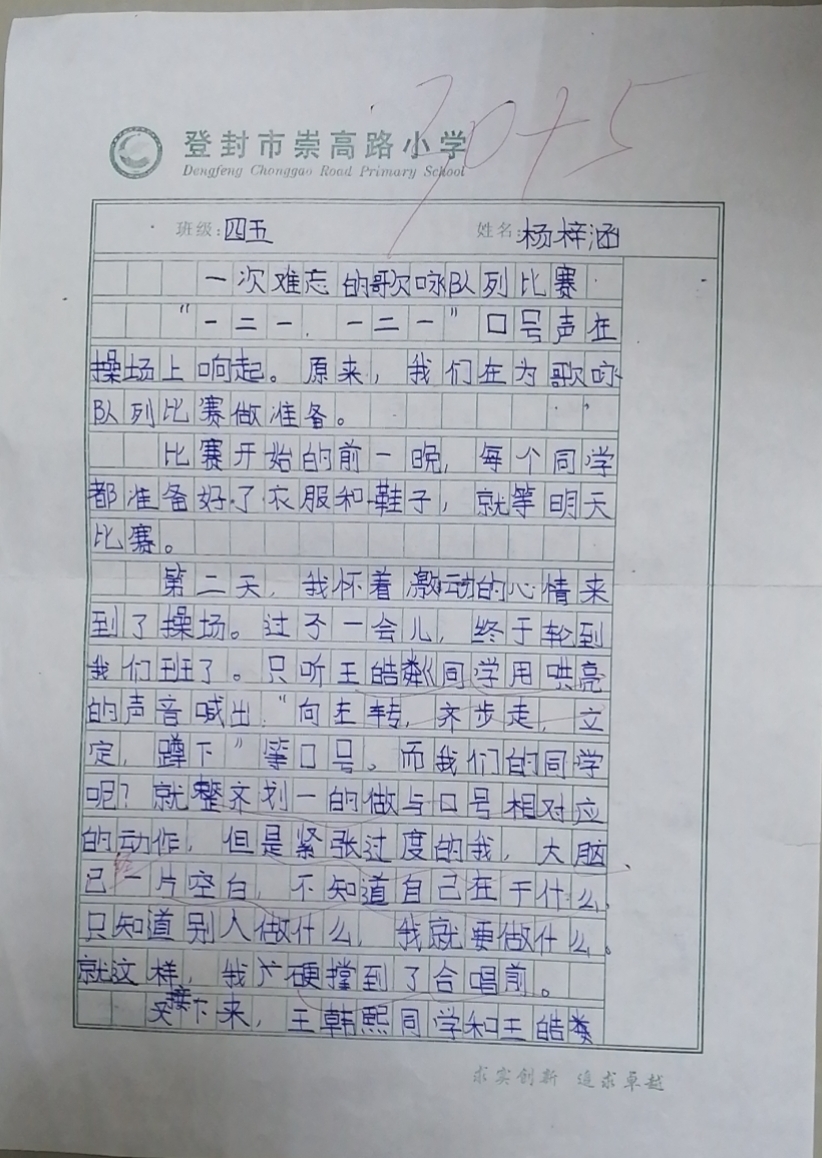 30+5
登封市崇高路小学
Dengfeng Chonggao Road Primary School
班级:四五 姓名:杨梓涵
一次难忘的歌咏队列比赛
“一二一,一二一”口号声在
操场上响起。原来,我们在为歌咏
队列比赛做准备。
比赛开始的前一晚,每个同学
都准备好了衣服和鞋子,就等明天
比赛。
第二天,我怀着激动的心情来
到了操场。过了一会儿,终于轮到
我们班了。只听王皓粼同学用哄亮
的声音喊出“向左转,齐步走,立
定,蹲下”等口号。而我们的同学
呢?就整齐划一的做与口号相对应
的动作,但是紧张过度的我,大脑
已一片空白,不知道自己在干什么,
只知道别人做什么,我就要做什么。
就这样,我硬撑到了合唱前。
接下来,王韩熙同学和王皓
求实创新 追求卓越